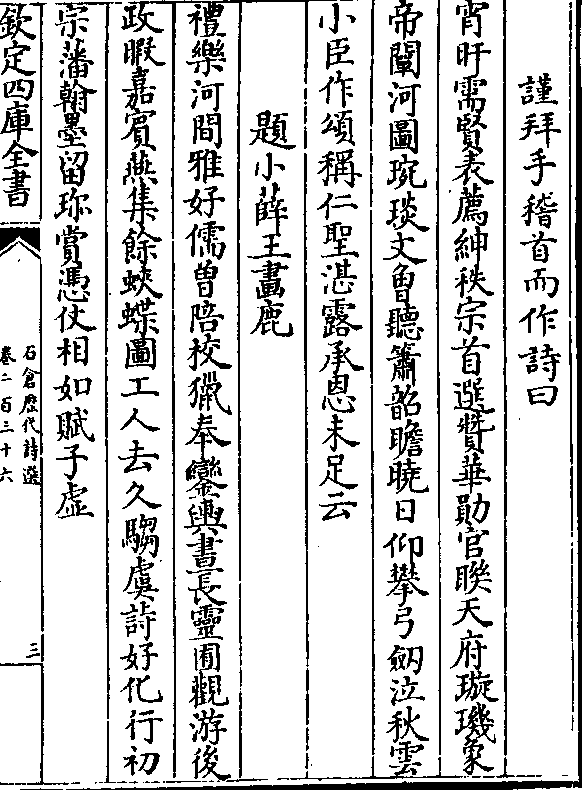 謹拜手稽首而作詩曰
宵旰需賢表薦紳秩宗首選贊華勛官聯天府璇璣象
帝闡河圖琬琰文曾聽簫韶瞻曉日仰攀弓劒泣秋雲
小臣作頌稱仁聖湛露承恩未足云
題小薛王畫鹿
禮樂河間雅好儒曽陪校獵奉鑾輿晝長靈囿觀游後
政暇嘉賓燕集餘蛺蝶圖工人去久騶虞詩好化行初
宗藩翰墨留珎賞憑仗相如賦子虛
欽定四庫全書
石倉歷代詩選
卷二百三十六
三